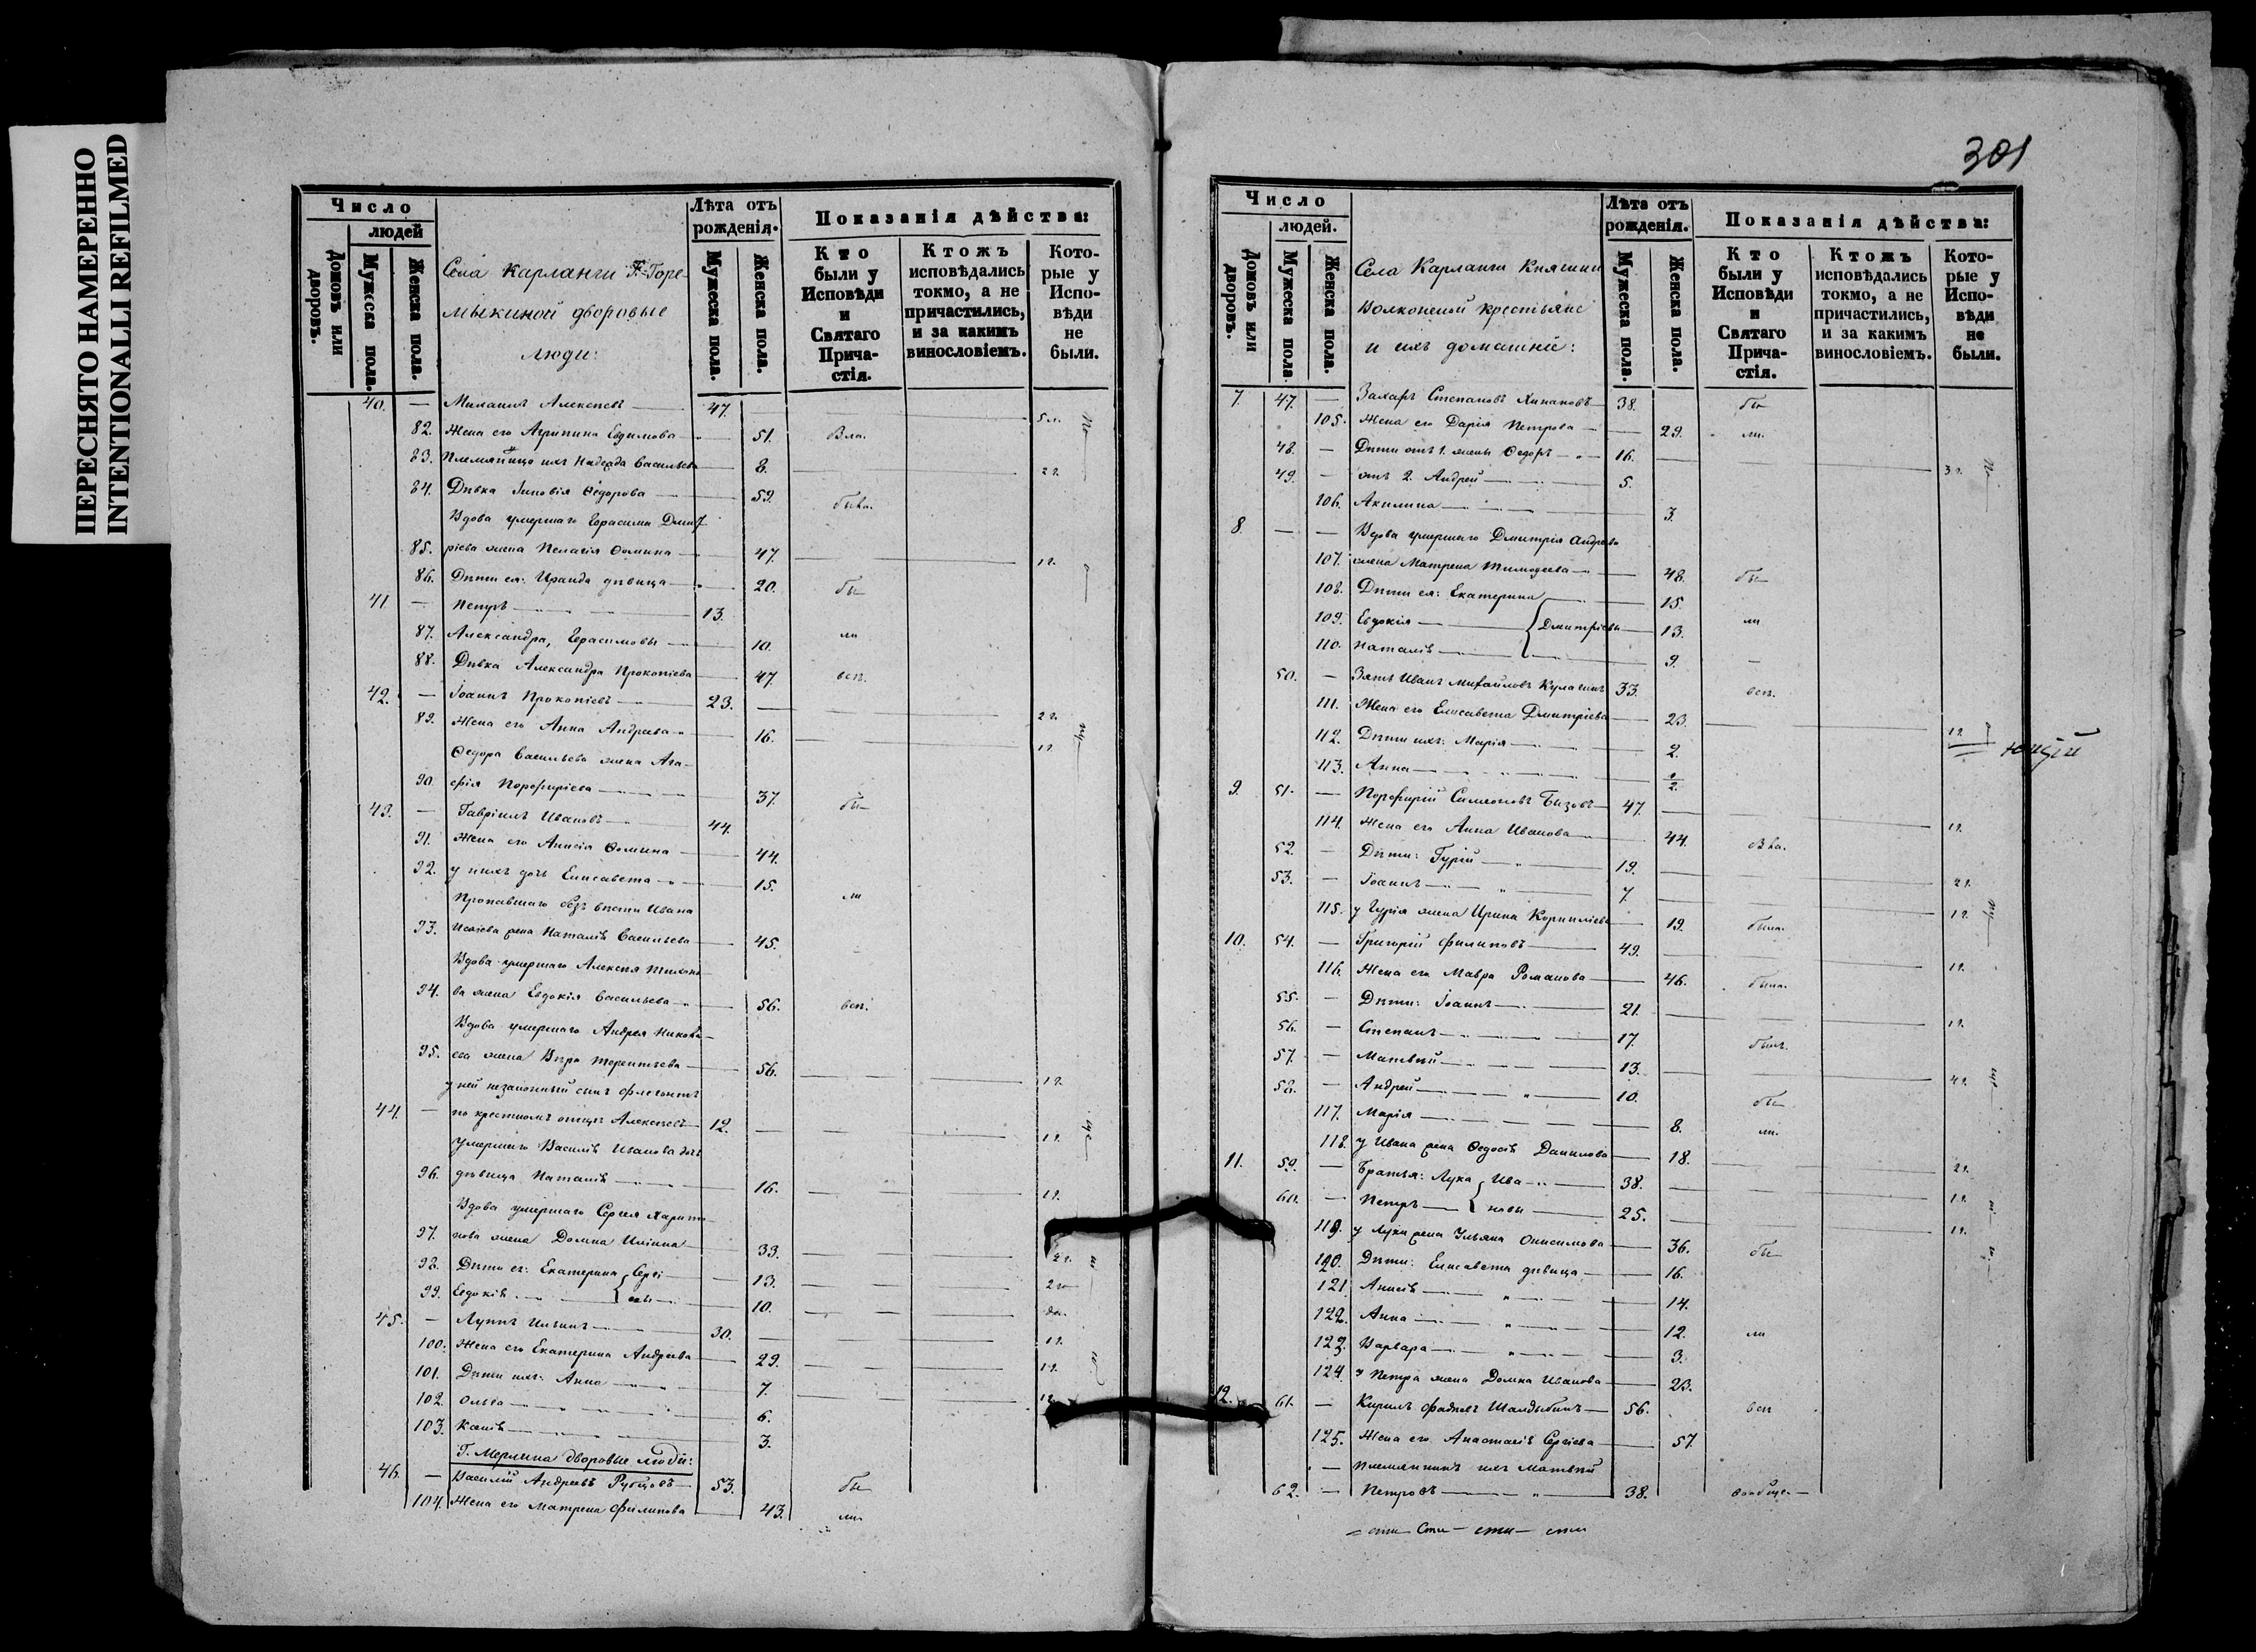 ПЕРЕСНЯТО НАМЕРЕННО
INTENTIONALLI REFILMED
Число
людей
Домовъ или дворовъ.
Мужеска пола.
Женска пола.
Села Карланги Г. Горе-
мыкиной дворовые
люди:
Лѣта отъ рожденія.
Мужеска пола.
Женска пола.
Показанія дѣйства:
Кто были у Исповѣди и Святаго Прича-стія.
Ктожъ исповѣдались токмо, а не причастились, и за какимъ винословіемъ.
Кото-рые у Испо-вѣди не были.
40. — Михаилъ Алексѣевъ — 47.
82. Жена его Агрипина Евдимова — 51.
83. Племянница ихъ Надежда Васильева — 8.
84. Дѣвка Зиновія Ѳедорова — 59. была.
Вдова умершаго Герасима Дмит
85. ріева жена Пелагія Ѳомина — 47.
86. Дѣти ея: Ираида дѣвица — 20. бы
41. — Петръ — 13.
87. Александра, Герасимовы — 10. ли
88. Дѣвка Александра Прокопіева — 47. всѣ.
42. — Іоаннъ Прокопіевъ — 23.
89. Жена его Анна Андреева — 16.
Ѳедора Васильева жена Ага-
90. фія Порфиріева — 37. бы
43. — Гавріилъ Ивановъ — 44.
91. Жена его Анисія Ѳомина — 44.
92. у нихъ дочь Елисавета — 15. ли
Пропавшаго безъ вѣсти Ивана
93. жена Наталія Васильева — 45.
Вдова умершаго Алексѣя Тихоно
94. ва жена Евдокія Васильева — 56. всѣ.
Вдова умершаго Андрея Никола-
95. ева жена Вѣра Терентьева — 56.
у ней незаконный сынъ Флегонтъ
44. — по крестномъ отцѣ Алексѣевъ — 12.
умершаго Василія Иванова дочь
96. дѣвица Наталія — 16.
Вдова умершаго Сергея Харито-
97. нова жена Домна Ильина — 33.
98. Дѣти ея: Екатерина Сергі — 13.
99. Евдокія — евы — 10.
45. — Луппъ Ильинъ — 30.
100. Жена его Екатерина Андреева — 29.
101. Дѣти ихъ: Анна — 7.
102. Ольга — 6.
103. — 3.
Г. Мерлина дворовые люди:
46. — Василій Андреевъ Рубцовъ — 53. бы
104. Жена его Матрена Филипова — 43. ли
301
Число
людей.
Домовъ или дворовъ.
Мужеска пола.
Женска пола.
Села Карланги Княгини
Волконской крестьяне
и ихъ домашніе:
Лѣта отъ рожденія.
Мужеска пола.
Женска пола.
Показанія дѣйства:
Кто были у Исповѣди и Святаго Прича-стія.
Ктожъ исповѣдались токмо, а не причастились, и за какимъ винословіемъ.
Кото-рые у Испо-вѣди не были.
7. 47. — Захаръ Степановъ — 38. бы
105. Жена его Дарія Петрова — 29. ли.
48. — Дѣти отъ 1. жены Ѳедоръ — 16.
49. — отъ 2. Андрей — 5.
106. Акилина — 3.
8. — — Вдова умершаго Дмитрія Андреева
107. жена Матрена Тимофеева — 48. бы
108. Дѣти ея: Екатерина — 15.
109. Евдокія — Дмитріевы — 13. ли
110. Наталія — 9.
50. — Зять Иванъ Михайловъ Кулагинъ 33. всѣ.
111. Жена его Елисавета Дмитріева — 23.
112. Дѣти ихъ: Марія — 2.
113. Анна — 1/2.
9. 51. — Порфирій Симеоновъ Бызовъ — 47.
114. Жена его Анна Ивановна — 44.
52. — Дѣти: Гурій — 19.
53. — Іоаннъ — 7.
115. у Гурія жена Ирина Корниліева — 19. была.
10. 54. — Григорій Филиповъ — 49.
116. Жена его Мавра Романова — 46. была.
55. — Дѣти: Іоаннъ — 21.
56. — Степанъ — 17. былъ.
57. — Матвѣй — 13.
58. — Андрей — 10. бы
117. Марія — 8. ли.
118. у Ивана жена Ѳедосія Данилова — 18.
11. 59. — Братья: Лука Ива — 38.
60. — Петръ — новы — 25.
119. у Луки жена Ульяна Онисимова — 36. бы
120. Дѣти: Елисавета дѣвица — 16.
121. Анисія — 14.
122. Анна — 12. ли
123. Варвара — 3.
124. у Петра жена Домна Иванова — 23.
12. 61. — Кирилъ Фадѣевъ Шалдыбинъ — 56. всѣ
125. Жена его Анастасія Сергіева — 57.
— Племянникъ ихъ Матвѣй
62. — Петровъ — 38.